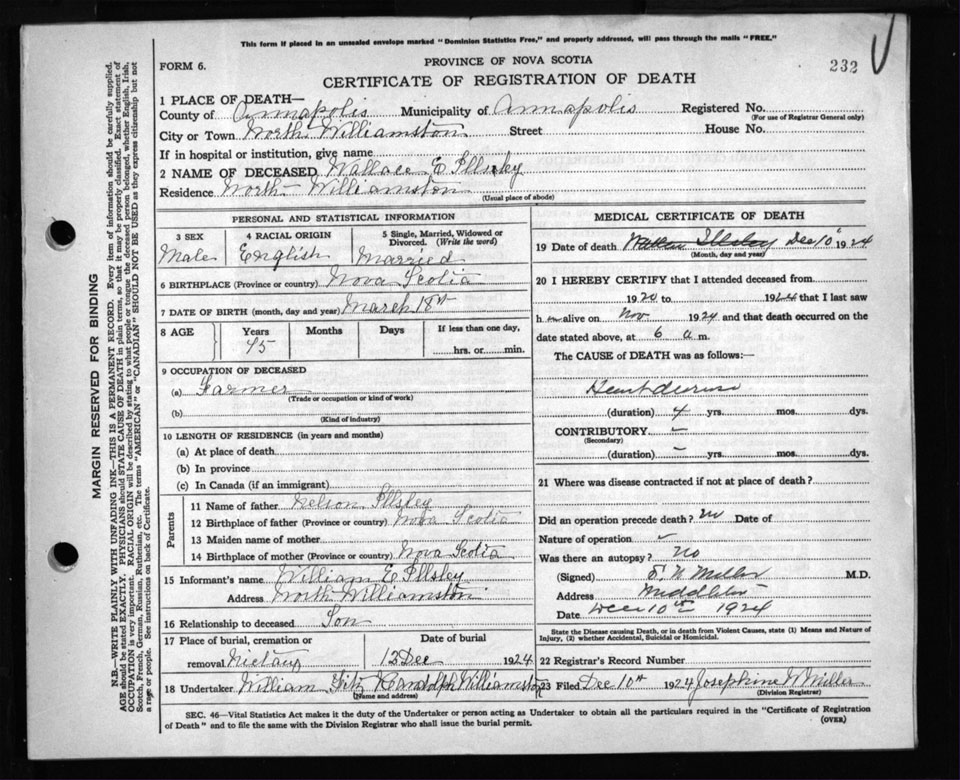 This form if placed in an unsealed envelope marked "Dominion Statistics Free," and properly addressed, will pass through the mails "FREE."
FORM 6.
PROVINCE OF NOVA SCOTIA
232
CERTIFICATE OF REGISTRATION OF DEATH
1 PLACE OF DEATH—
County of Annapolis Municipality of Annapolis Registered No.
(For use of Registrar General only)
City or Town North Williamston Street House No.
If in hospital or institution, give name
2 NAME OF DECEASED Wallace E Illsley
Residence North Williamston
(Usual place of abode)
PERSONAL AND STATISTICAL INFORMATION
3 SEX
Male
4 RACIAL ORIGIN
English
5 Single, Married, Widowed or Divorced. (Write the word)
Married
6 BIRTHPLACE (Province or country) Nova Scotia
7 DATE OF BIRTH (month, day and year) March 18th
8 AGE
Years
75
Months
Days
If less than one day,
hrs. or min.
9 OCCUPATION OF DECEASED
(a) Farmer
(Trade or occupation or kind of work)
(b)
(Kind of industry)
10 LENGTH OF RESIDENCE (in years and months)
(a) At place of death
(b) In province
(c) In Canada (if an immigrant)
Parents
11 Name of father Nelson Illsley
12 Birthplace of father (Province or country) Nova Scotia
13 Maiden name of mother
14 Birthplace of mother (Province or country) Nova Scotia
15 Informant's name William E Illsley
Address North Williamston
16 Relationship to deceased Son
17 Place of burial, cremation or
removal Nictaux
Date of burial
12 Dec 1924
18 Undertaker William Fitz Randolph Williamston
(Name and address)
MEDICAL CERTIFICATE OF DEATH
19 Date of death Illsley Dec 10 1924
(Month, day and year)
20 I HEREBY CERTIFY that I attended deceased from
1920 to 1924 that I last saw
h im alive on Nov 1924 and that death occurred on
date stated above, at 6 a m.
The CAUSE of DEATH was as follows:—
Heart disease
(duration) 4 yrs. mos. dys.
CONTRIBUTORY
(Secondary)
(duration) yrs. mos. dys.
21 Where was disease contracted if not at place of death?
Did an operation precede death? no Date of
Nature of operation
Was there an autopsy? No
(Signed) Miller M.D.
Address Middleton
Date Dec 10th 1924
State the Disease causing Death, or in death from Violent Causes, state (1) Means and Nature of
Injury, (2) whether Accidental, Suicidal or Homicidal.
22 Registrar's Record Number
23 Filed Dec 10th 1924 Josephine W Miller
(Division Registrar)
SEC. 46—Vital Statistics Act makes it the duty of the Undertaker or person acting as Undertaker to obtain all the particulars required in the "Certificate of Registration
of Death" and to file the same with the Division Registrar who shall issue the burial permit.
(OVER)
MARGIN RESERVED FOR BINDING
N.B.—WRITE PLAINLY WITH UNFADING INK—THIS IS A PERMANENT RECORD. Every item of information should be carefully supplied.
AGE should be stated EXACTLY. PHYSICIANS should STATE CAUSE OF DEATH in plain terms, so that it may be properly classified. Exact statement of
OCCUPATION is very important. RACIAL ORIGIN will be described by stating to what people or tongue the deceased person belonged, whether English, Irish,
Scotch, French, German, Russian, Ruthenian, etc. The terms "AMERICAN" or "CANADIAN" SHOULD NOT BE USED as they express citizenship but not
a race or people. See instructions on back of Certificate.